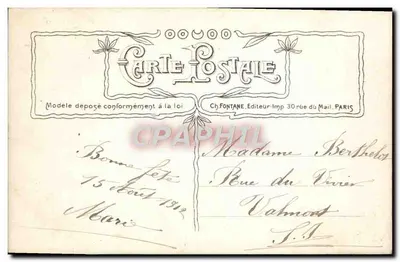 CARTE POSTALE
Modèle déposé conformément à la loi
Ch. FONTANE, Editeur-Imp. 30 rue du Mail, PARIS
CPAPHIL.com
Bonne fête
15 Août 1912
Marie
Madame Berthelot
Rue du Vivier
Valmont
S. I